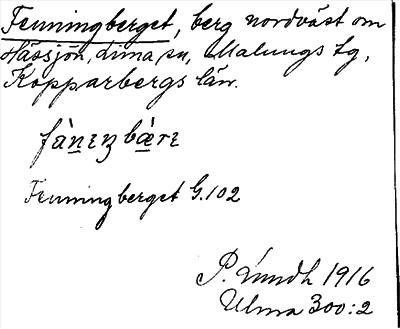 Fenningberget, berg nordväst om
Hässjön, Lima sn, Malungs tg,
Kopparbergs län.
fànıŋbæ̀rı
Fenningberget G.102
P. Lindh 1916
Ulma 300:2